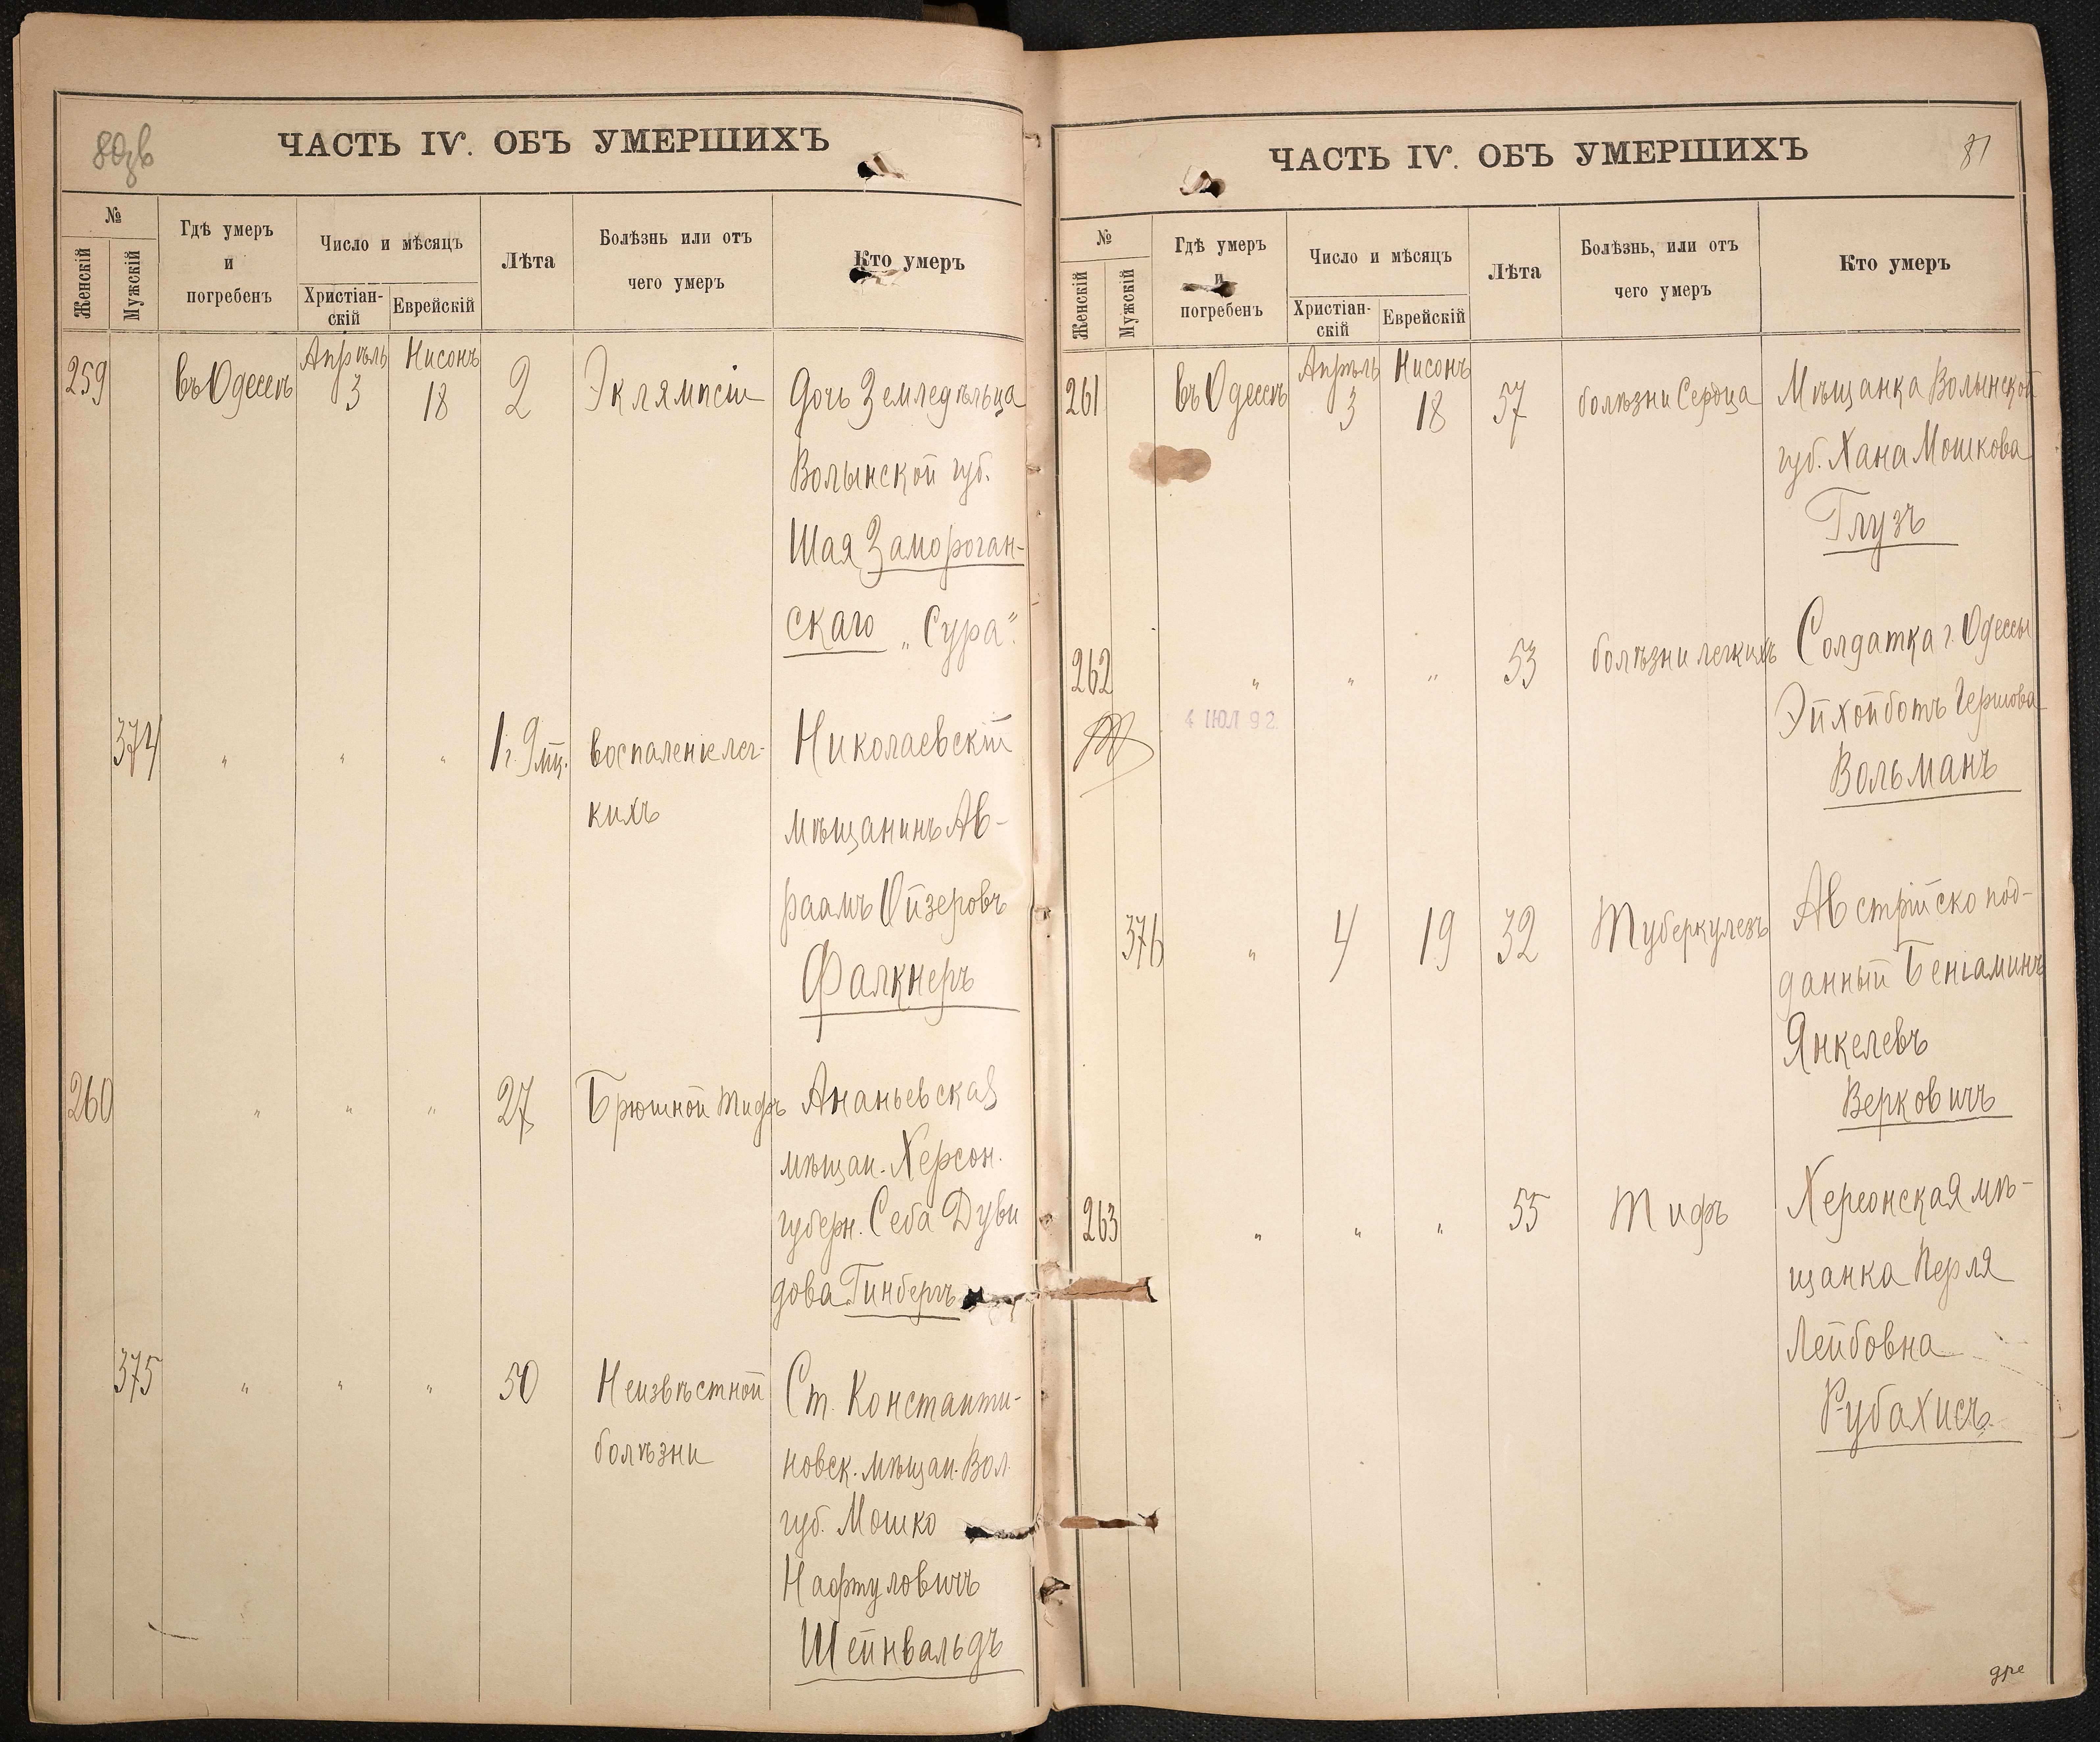 ЧАСТЬ IV. ОБЪ УМЕРШИХЪ
№
Женскій
Мужскій
Гдѣ умеръ
и
погребенъ
Число и мѣсяцъ
Христіан-
скій
Еврейскій
Лѣта
Болѣзнь или отъ
чего умеръ
Кто умеръ
259 въ Одессѣ Апрѣль 3 Нисонъ 18 2 Эклямпсіи Дочь Земледѣльца
Волынской губ.
Шая Замороган-
скаго „Сура“.
374 " " " 1 г. 9 мц. воспаленіе лег- Николаевскій
кихъ
мѣщанинъ Ав-
раамъ Ойзеровъ
Фалкнеръ
260 " " " 27 Брюшной тифъ Ананьевская
мѣщан. Херсон.
губерн. Себа Дуви
дова Гинбергъ
375 " " " 50 Неизвѣстной Ст. Константи-
болѣзни новск. мѣщан. Вол.
губ. Мошко
Нафтуловичъ
Шейнвальдъ
ЧАСТЬ IV. ОБЪ УМЕРШИХЪ
81
№
Женскій
Мужскій
Гдѣ умеръ
и
погребенъ
Число и мѣсяцъ
Христіан-
скій
Еврейскій
Лѣта
Болѣзнь, или отъ
чего умеръ
Кто умеръ
261 въ Одессѣ Апрѣль 3 Нисонъ 18 57 болѣзни Сердца Мѣщанка Волынской
губ. Хана Мошкова
Глузъ
262 " " " 53 болѣзни легкихъ Солдатка г. Одессы
4 ІЮЛ 92
Эйхойботъ Гершова
Вольманъ
376 " 4 19 32 Туберкулезъ Австрійско под-
данный Беніаминъ
Янкелевъ
Верковичъ
263 " " " 55 Тифъ Херсонская мѣ-
щанка Перля
Лейбовна
Рубахисъ